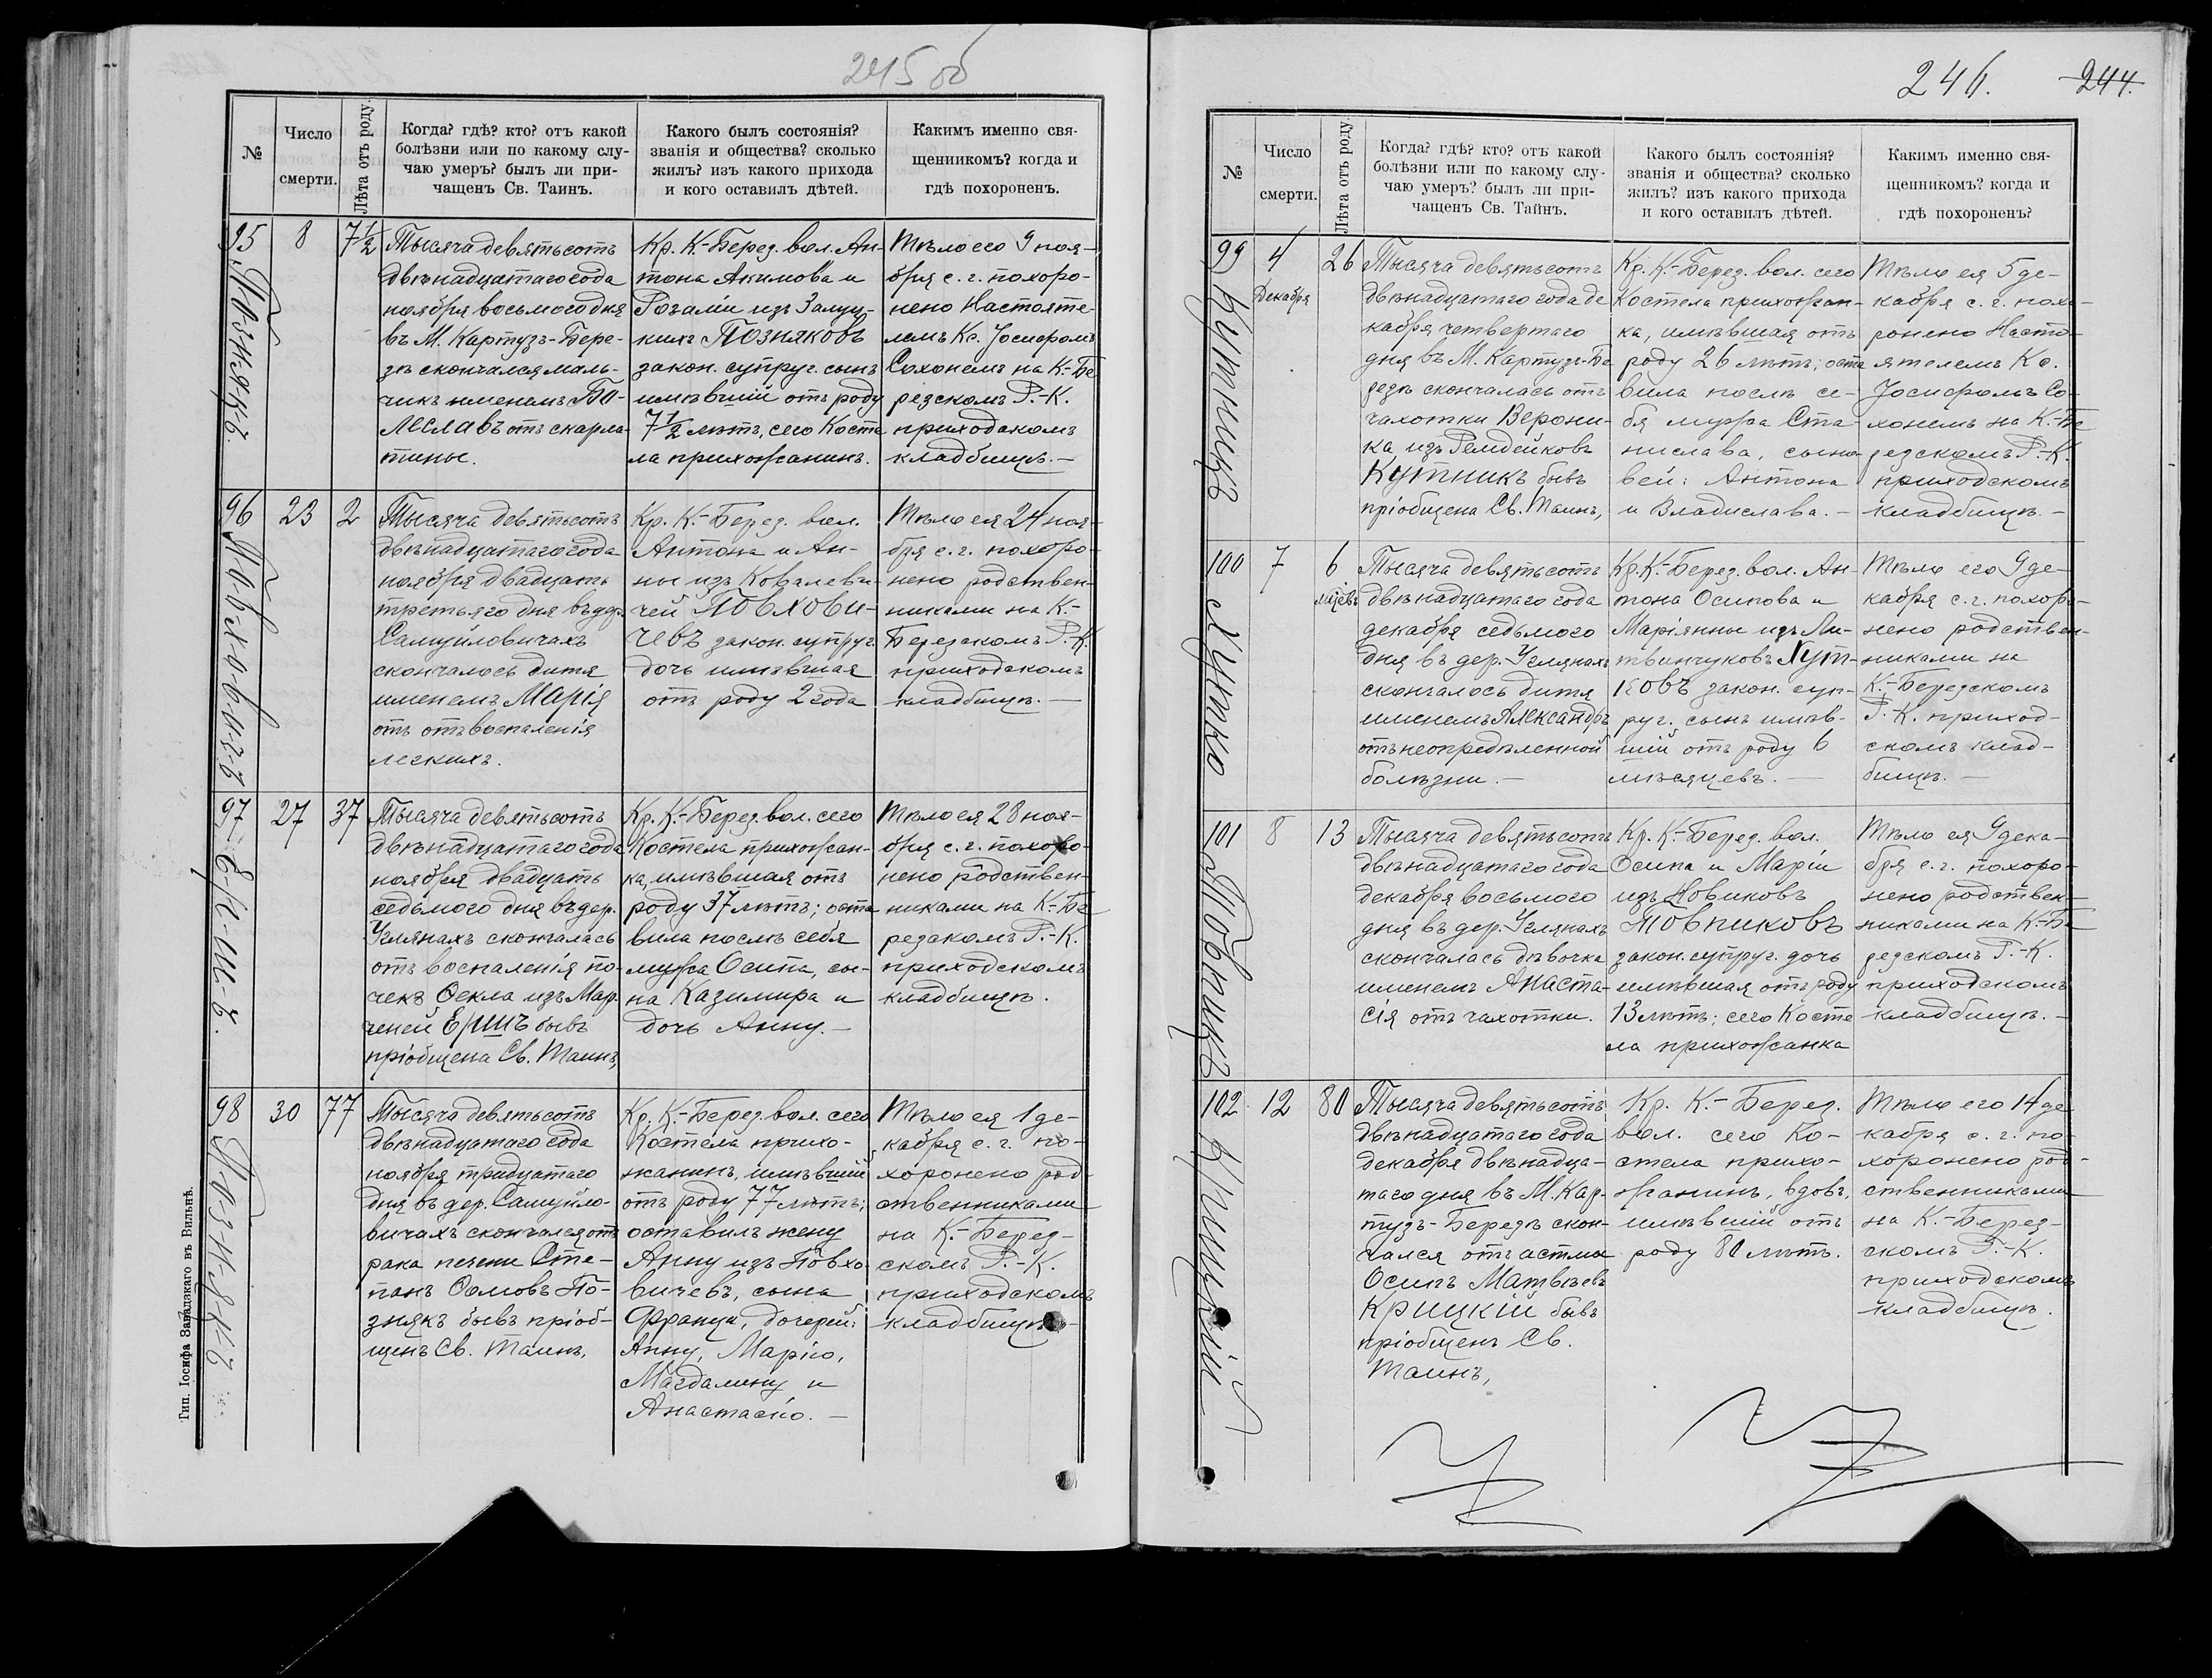 245 об
№
Число
смерти.
Лѣта отъ роду.
Когда? гдѣ? кто? отъ какой
болѣзни или по какому слу-
чаю умеръ? былъ ли при-
чащенъ Св. Таинъ.
Какого былъ состоянія?
званія и общества? сколько
жилъ? изъ какого прихода
и кого оставилъ дѣтей.
Какимъ именно свя-
щенникомъ? когда и
гдѣ похороненъ.
95
Познякъ.
8
7½
Тысяча девятьсотъ
двѣнадцатаго года
ноября восьмого дня
въ М. Картузъ-Бере-
зѣ скончался маль-
чикъ именемъ Бо-
леславъ отъ скарла-
тины.
Кр. К.-Берез. вол. Ан-
тона Акимова и
Розаліи изъ
Позняковъ
закон. супруг. сынъ
имѣвшій отъ роду
7½ лѣтъ, сего Косте
ла прихожанинъ.
Тѣло его 9 ноя-
бря с. г. похоро-
нено Настояте-
лемъ Кс. Іосифомъ
Сохонемъ на К.-Бе
резскомъ Р.-К.
приходскомъ
кладбищѣ.-
96
Повховичъ
23
2
Тысяча девятьсотъ
двѣнадцатаго года
ноября двадцать
третьяго дня въ дер.
Самуйловичахъ
скончалось дитя
именемъ Марія
отъ отъ воспаленія
легкихъ.
Кр. К.-Берез. вол.
Антона и Ан-
ны изъ Ковалеви-
чей Повхови-
чевъ закон. супруг.
дочь имѣвшая
отъ роду 2 года
Тѣло ея 24 ноя-
бря с. г. похоро-
нено родствен-
никами на К.-
Березскомъ Р.-К.
приходскомъ
кладбищѣ.-
97
Ершъ.
27
37
Тысяча девятьсотъ
двѣнадцатаго года
ноября двадцать
седьмого дня въ дер.
Углянахъ скончалась
отъ воспаленія по-
чекъ Ѳекла изъ Мар-
ченей Ершъ бывъ
пріобщена Св. Таинъ,
Кр. К.-Берез. вол. сего
Костела прихожан-
ка, имѣвшая отъ
роду 37 лѣтъ; оста
вила послѣ себя
мужа Осипа, сы-
на Казимира и
дочь Анну.-
Тѣло ея 28 ноя-
бря с. г. похоро-
нено родствен-
никами на К.-Бе
резскомъ Р.-К.
приходскомъ
кладбищѣ.
98
Познякъ
30
77
Тысяча девятьсотъ
двѣнадцатаго года
ноября тридцатаго
дня въ дер. Самуйло-
вичахъ скончался отъ
рака печени Сте-
панъ Ѳомовъ По-
знякъ бывъ пріоб-
щенъ Св. Таинъ,
Кр. К.-Берез. вол. сего
Костела прихо-
жанинъ, имѣвшій
отъ роду 77 лѣтъ;
оставилъ жену
Анну изъ Повхо-
вичевъ, сына
Франца, дочерей:
Анну, Марію,
Магдалину и
Анастасію.-
Тѣло ея 1 де-
кабря с. г. по-
хоронено род-
ственниками
на К.-Берез-
скомъ Р.-К.
приходскомъ
кладбищѣ.-
Тип. Іосифа Завадзкаго въ Вильнѣ.
246. 244.
№
Число
смерти.
Лѣта отъ роду.
Когда? гдѣ? кто? отъ какой
болѣзни или по какому слу-
чаю умеръ? былъ ли при-
чащенъ Св. Тайнъ.
Какого былъ состоянія?
званія и общества? сколько
жилъ? изъ какого прихода
и кого оставилъ дѣтей.
Какимъ именно свя-
щенникомъ? когда и
гдѣ похороненъ?
99
Кутникъ
4
Декабря
26
Тысяча девятьсотъ
двѣнадцатаго года де
кабря четвертаго
дня въ М. Картузъ-Бе
резѣ скончалась отъ
чахотки Верони-
ка изъ Ремдейковъ
Кутникъ бывъ
пріобщена Св. Таинъ,
Кр. К.-Берез. вол. сего
Костела прихожан-
ка, имѣвшая отъ
роду 26 лѣтъ; оста
вила послѣ се-
бя мужа Ста-
нислава, сыно-
вей: Антона
и Владислава.-
Тѣло ея 5 де-
кабря с. г. похо-
ронено Насто-
ятелемъ Кс.
Іосифомъ Со-
хонемъ на К.-Бе
резскомъ Р.-К.
приходскомъ
кладбищѣ.-
100
Хутко
7
6
мѣсяцевъ
Тысяча девятьсотъ
двѣнадцатаго года
декабря седьмого
дня въ дер. Углянахъ
скончалось дитя
именемъ Александръ
отъ неопредѣленной
болѣзни.-
Кр. К.-Берез. вол. Ан-
тона Осипова и
Маріянны изъ Ли-
твинчуковъ Хут-
ковъ закон. суп-
руг. сынъ имѣв-
шій отъ роду 6
мѣсяцевъ.-
Тѣло его 9 де-
кабря с. г. похоро-
нено родствен-
никами на
К.-Березскомъ
Р.-К. приход-
скомъ клад-
бищѣ.-
101
Товпикъ
8
13
Тысяча девятьсотъ
двѣнадцатаго года
декабря восьмого
дня въ дер. Углянахъ
скончалась дѣвочка
именемъ Анаста-
сія отъ чахотки.
Кр. К.-Берез. вол.
Осипа и Маріи
изъ Новиковъ
Товпиковъ
закон. супруг. дочь
имѣвшая отъ роду
13 лѣтъ; сего Косте
ла прихожанка
Тѣло ея 9 дека-
бря с. г. похоро-
нено родствен-
никами на К.-Бе
резскомъ Р.-К.
приходскомъ
кладбищѣ.-
102
Крицкій
12
80
Тысяча девятьсотъ
двѣнадцатаго года
декабря двѣнадца-
таго дня въ М. Кар-
тузъ-Березѣ скон-
чался отъ астмы
Осипъ Матвѣевъ
Крицкій бывъ
пріобщенъ Св.
Таинъ,
Кр. К.-Берез.
вол. сего Ко-
стела прихо-
жанинъ, вдовъ,
имѣвшій отъ
роду 80 лѣтъ.
Тѣло его 14 де
кабря с. г. по-
хоронено род-
ственниками
на К.-Берез-
скомъ Р.-К.
приходскомъ
кладбищѣ.